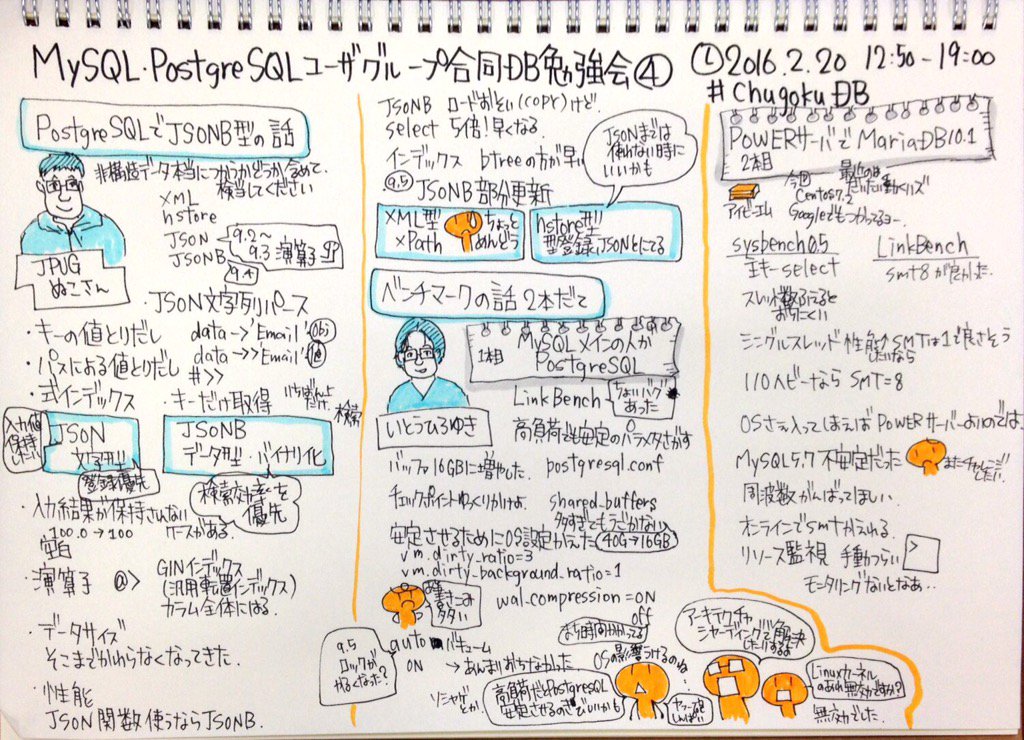 MySQL・PostgreSQLユーザグループ合同DB勉強会④
2016.2.20 12:50-19:00
#ChugokuDB
PostgreSQLでJSONB型の話
非構造データ本当につかうかどうか含めて、
検討してください
XML
hstore
JSON
JSONB
9.2~
9.3 演算子
9.4
JPUG
ぬこさん
・JSON文字列リパース
・キーの値とりだし data->'Email'
・パスによる値とりだし data->>'Email'
#>>
・式インデックス
・キーだけ取得
検索
入力値
保持
したい
JSON
文字型
登録優先
JSONB
データ型・バイナリ化
検索効率を
優先
・入力結果が保持されない
100.0→100 ケースがある
空白
・演算子 @>
GINインデックス
(汎用転置インデックス)
カラム全体にはる。
・データサイズ
そこまでかわらなくなってきた。
・性能
JSON関数使うならJSONB.
JSONB ロードおそい(COPY)けど.
select 5倍!早くなる.
インデックス btreeの方が早い
9.5 JSONB部分更新
JSONまでは
使わない時に
いいかも
XML型
xPath
ちょっと
めんどう
hstore型
型登録、JSONとにてる
ベンチマークの話 2本だて
いとうひろゆき
1本目
MySQLメインの人が
PostgreSQL
LinkBench
ちょいバグ
あった
高負荷でも安定のパラメタさがす
バッファ16GBに増やした postgresql.conf
チェックポイントゆっくりかけよ. shared-buffers
多すぎてもうごかない
40G→16GB
安定させるためにOS設定かえた
vm.dirty_ratio=3
vm.dirty_background_ratio=1
書きこみ
多い
wal-compression=ON
off
まち時間かかってる
9.5
ロックが
ゆるくなった?
autoバキューム
ON →あんまりおちなかった
OSの影響うけるのね
ソシャゲ
とか
高負荷だとPostgreSQL
安定させるのきびしいかも
アーキテクチャ
シャーディングで解決
Linuxカーネル
のあれ無効ですか?
無効でした.
POWERサーバでMariaDB10.1
2本目
アイビーエム
今回
CentOS7.2
最近のは
だいたい動くハズ
Googleでもつかってるヨー.
sysbench0.5
主キーselect
LinkBench
smt8が良かった.
スレッド数ふえると
おちにくい
シングルスレッド性能 SMTは1で良さそう
したいなら
I/OヘビーならSMT=8
OSさえ入ってしまえばPOWERサーバーよいのでは.
MySQL5.7不安定だった
またチャレンジ
したい.
周波数がんばってほしい
オンラインでsmtかえれる.
リソース監視 手動つらい
>
モニタリングないとなあ..